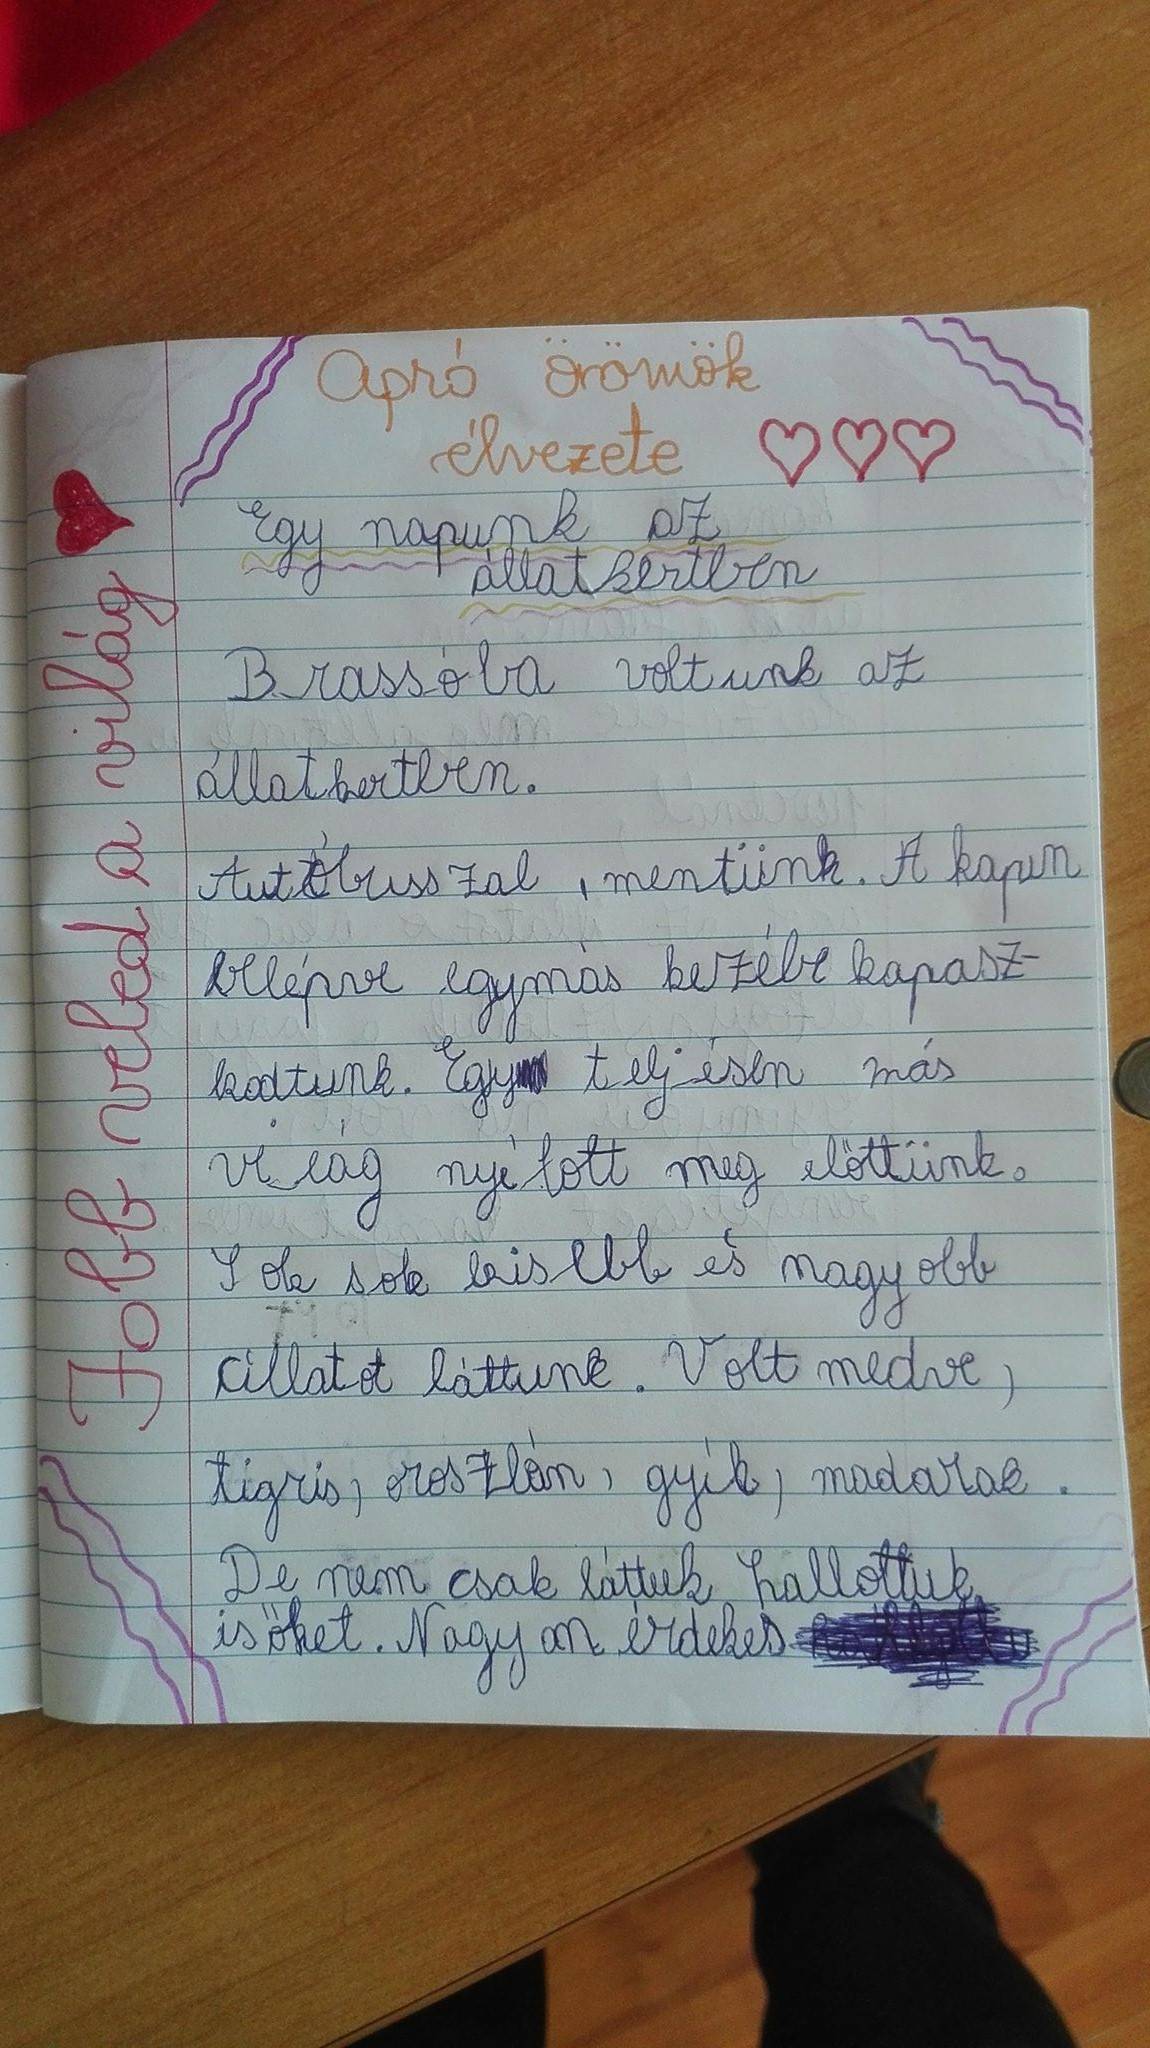 Apró örömök
élvezete
Egy napunk az
állatkertben
Brassóba voltunk az
állatkertben.
Autóbusszal, mentünk. A kapun
bellépve egymás kezébe kapasz-
kodtunk. Egy teljésen más
világ nyílott meg előttünk.
Sok sok kissebb és nagyobb
állatot láttunk. Volt medve,
tigris, oroszlán, gyík, madarak.
De nem csak láttuk hallottuk
is őket. Nagyon érdekes
Jobb veled a világ